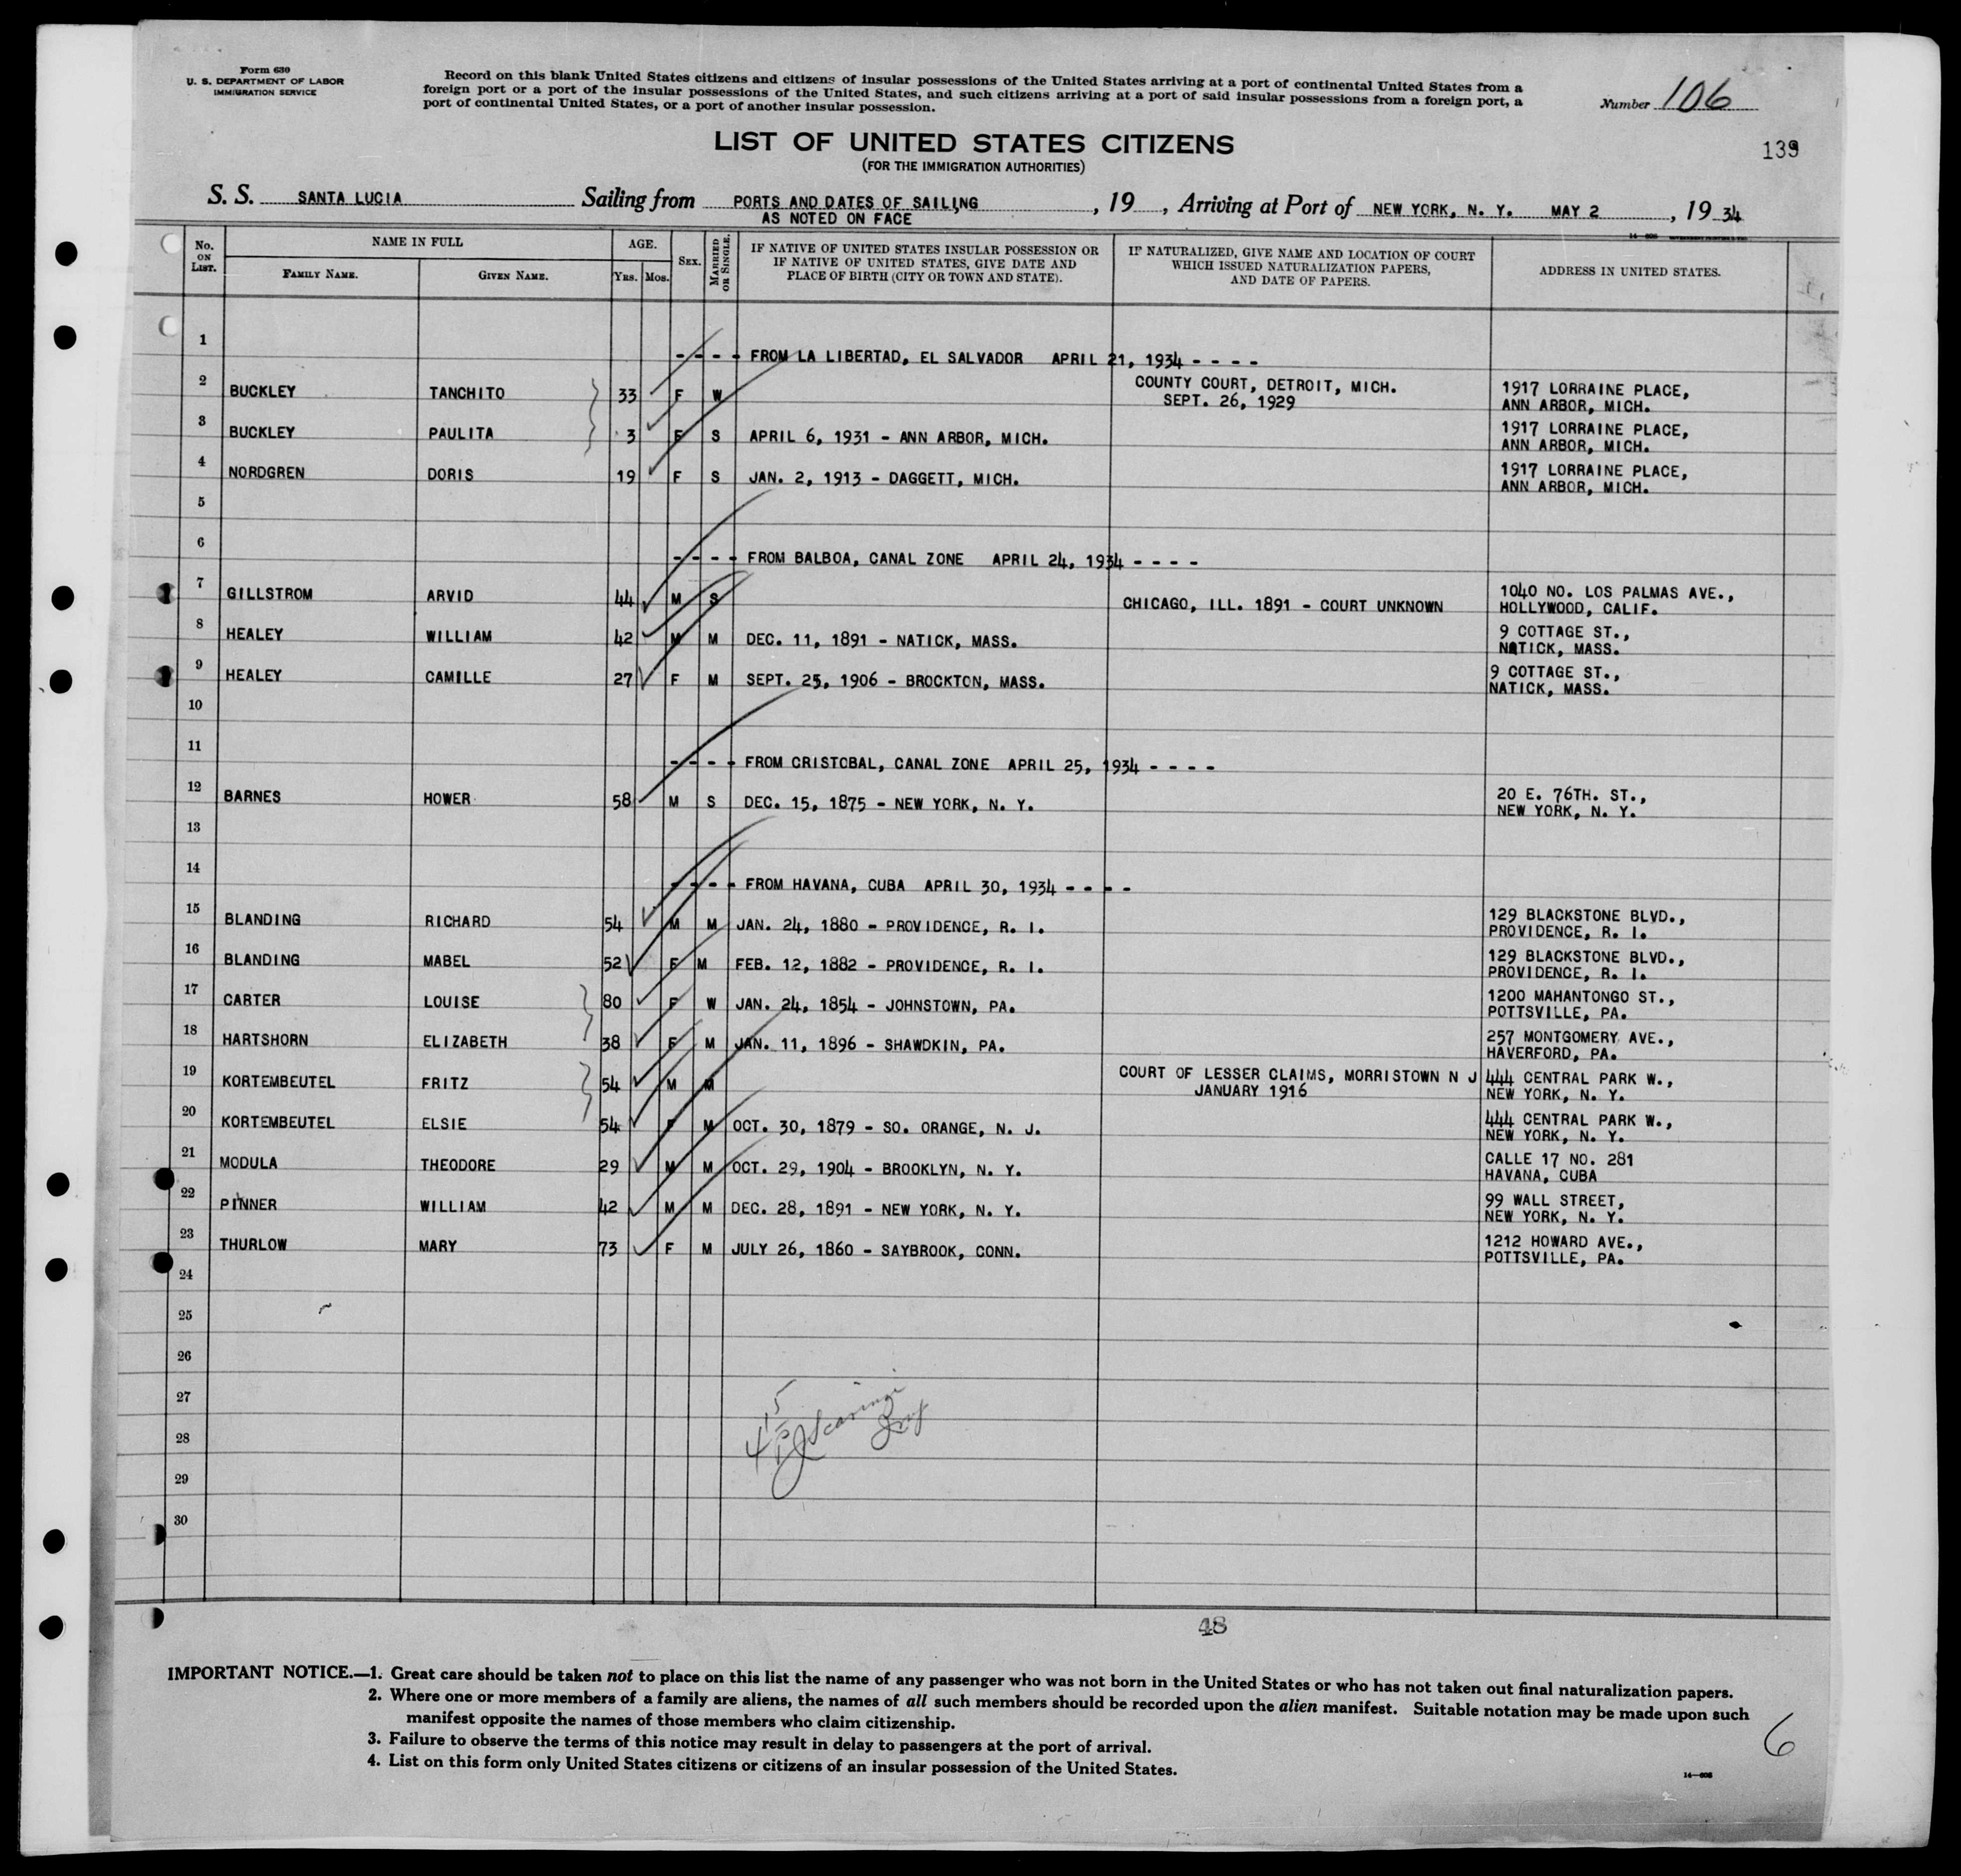 Form 630
U. S. DEPARTMENT OF LABOR
IMMIGRATION SERVICE
Record on this blank United States citizens and citizens of insular possessions of the United States arriving at a port of continental United States from a
foreign port or a port of the insular possessions of the United States, and such citizens arriving at a port of said insular possessions from a foreign port, a
port of continental United States, or a port of another insular possession.
Number 106
LIST OF UNITED STATES CITIZENS
(FOR THE IMMIGRATION AUTHORITIES)
139
S. S. SANTA LUCIA Sailing from PORTS AND DATES OF SAILING AS NOTED ON FACE, 19 , Arriving at Port of NEW YORK, N. Y. MAY 2, 19 34
No. ON LIST.
NAME IN FULL
FAMILY NAME. GIVEN NAME.
AGE.
YRS. MOS.
SEX.
MARRIED OR SINGLE.
IF NATIVE OF UNITED STATES INSULAR POSSESSION OR
IF NATIVE OF UNITED STATES, GIVE DATE AND
PLACE OF BIRTH (CITY OR TOWN AND STATE).
IF NATURALIZED, GIVE NAME AND LOCATION OF COURT
WHICH ISSUED NATURALIZATION PAPERS,
AND DATE OF PAPERS.
ADDRESS IN UNITED STATES.
1
- - - - FROM LA LIBERTAD, EL SALVADOR APRIL 21, 1934 - - - -
2 BUCKLEY TANCHITO 33 F W COUNTY COURT, DETROIT, MICH. 1917 LORRAINE PLACE,
SEPT. 26, 1929 ANN ARBOR, MICH.
3 BUCKLEY PAULITA 3 F S APRIL 6, 1931 - ANN ARBOR, MICH. 1917 LORRAINE PLACE,
ANN ARBOR, MICH.
4 NORDGREN DORIS 19 F S JAN. 2, 1913 - DAGGETT, MICH. 1917 LORRAINE PLACE,
ANN ARBOR, MICH.
5
6
- - - - FROM BALBOA, CANAL ZONE APRIL 24, 1934 - - - -
7 GILLSTROM ARVID 44 M S CHICAGO, ILL. 1891 - COURT UNKNOWN 1040 NO. LOS PALMAS AVE.,
HOLLYWOOD, CALIF.
8 HEALEY WILLIAM 42 M M DEC. 11, 1891 - NATICK, MASS. 9 COTTAGE ST.,
NATICK, MASS.
9 HEALEY CAMILLE 27 F M SEPT. 25, 1906 - BROCKTON, MASS. 9 COTTAGE ST.,
NATICK, MASS.
10
11
- - - - FROM CRISTOBAL, CANAL ZONE APRIL 25, 1934 - - - -
12 BARNES HOWER 58 M S DEC. 15, 1875 - NEW YORK, N. Y. 20 E. 76TH. ST.,
NEW YORK, N. Y.
13
14
- - - - FROM HAVANA, CUBA APRIL 30, 1934 - - - -
15 BLANDING RICHARD 54 M M JAN. 24, 1880 - PROVIDENCE, R. I. 129 BLACKSTONE BLVD.,
PROVIDENCE, R. I.
16 BLANDING MABEL 52 F M FEB. 12, 1882 - PROVIDENCE, R. I. 129 BLACKSTONE BLVD.,
PROVIDENCE, R. I.
17 CARTER LOUISE 80 F W JAN. 24, 1854 - JOHNSTOWN, PA. 1200 MAHANTONGO ST.,
POTTSVILLE, PA.
18 HARTSHORN ELIZABETH 38 F M JAN. 11, 1896 - SHAWDKIN, PA. 257 MONTGOMERY AVE.,
HAVERFORD, PA.
19 KORTEMBEUTEL FRITZ 54 M M COURT OF LESSER CLAIMS, MORRISTOWN N J 444 CENTRAL PARK W.,
JANUARY 1916 NEW YORK, N. Y.
20 KORTEMBEUTEL ELSIE 54 F M OCT. 30, 1879 - SO. ORANGE, N. J. 444 CENTRAL PARK W.,
NEW YORK, N. Y.
21 MODULA THEODORE 29 M M OCT. 29, 1904 - BROOKLYN, N. Y. CALLE 17 NO. 281
HAVANA, CUBA
22 PINNER WILLIAM 42 M M DEC. 28, 1891 - NEW YORK, N. Y. 99 WALL STREET,
NEW YORK, N. Y.
23 THURLOW MARY 73 F M JULY 26, 1860 - SAYBROOK, CONN. 1212 HOWARD AVE.,
POTTSVILLE, PA.
24
25
26
27
28
29
30
48
IMPORTANT NOTICE.—1. Great care should be taken not to place on this list the name of any passenger who was not born in the United States or who has not taken out final naturalization papers.
2. Where one or more members of a family are aliens, the names of all such members should be recorded upon the alien manifest. Suitable notation may be made upon such
manifest opposite the names of those members who claim citizenship.
3. Failure to observe the terms of this notice may result in delay to passengers at the port of arrival.
4. List on this form only United States citizens or citizens of an insular possession of the United States.
6